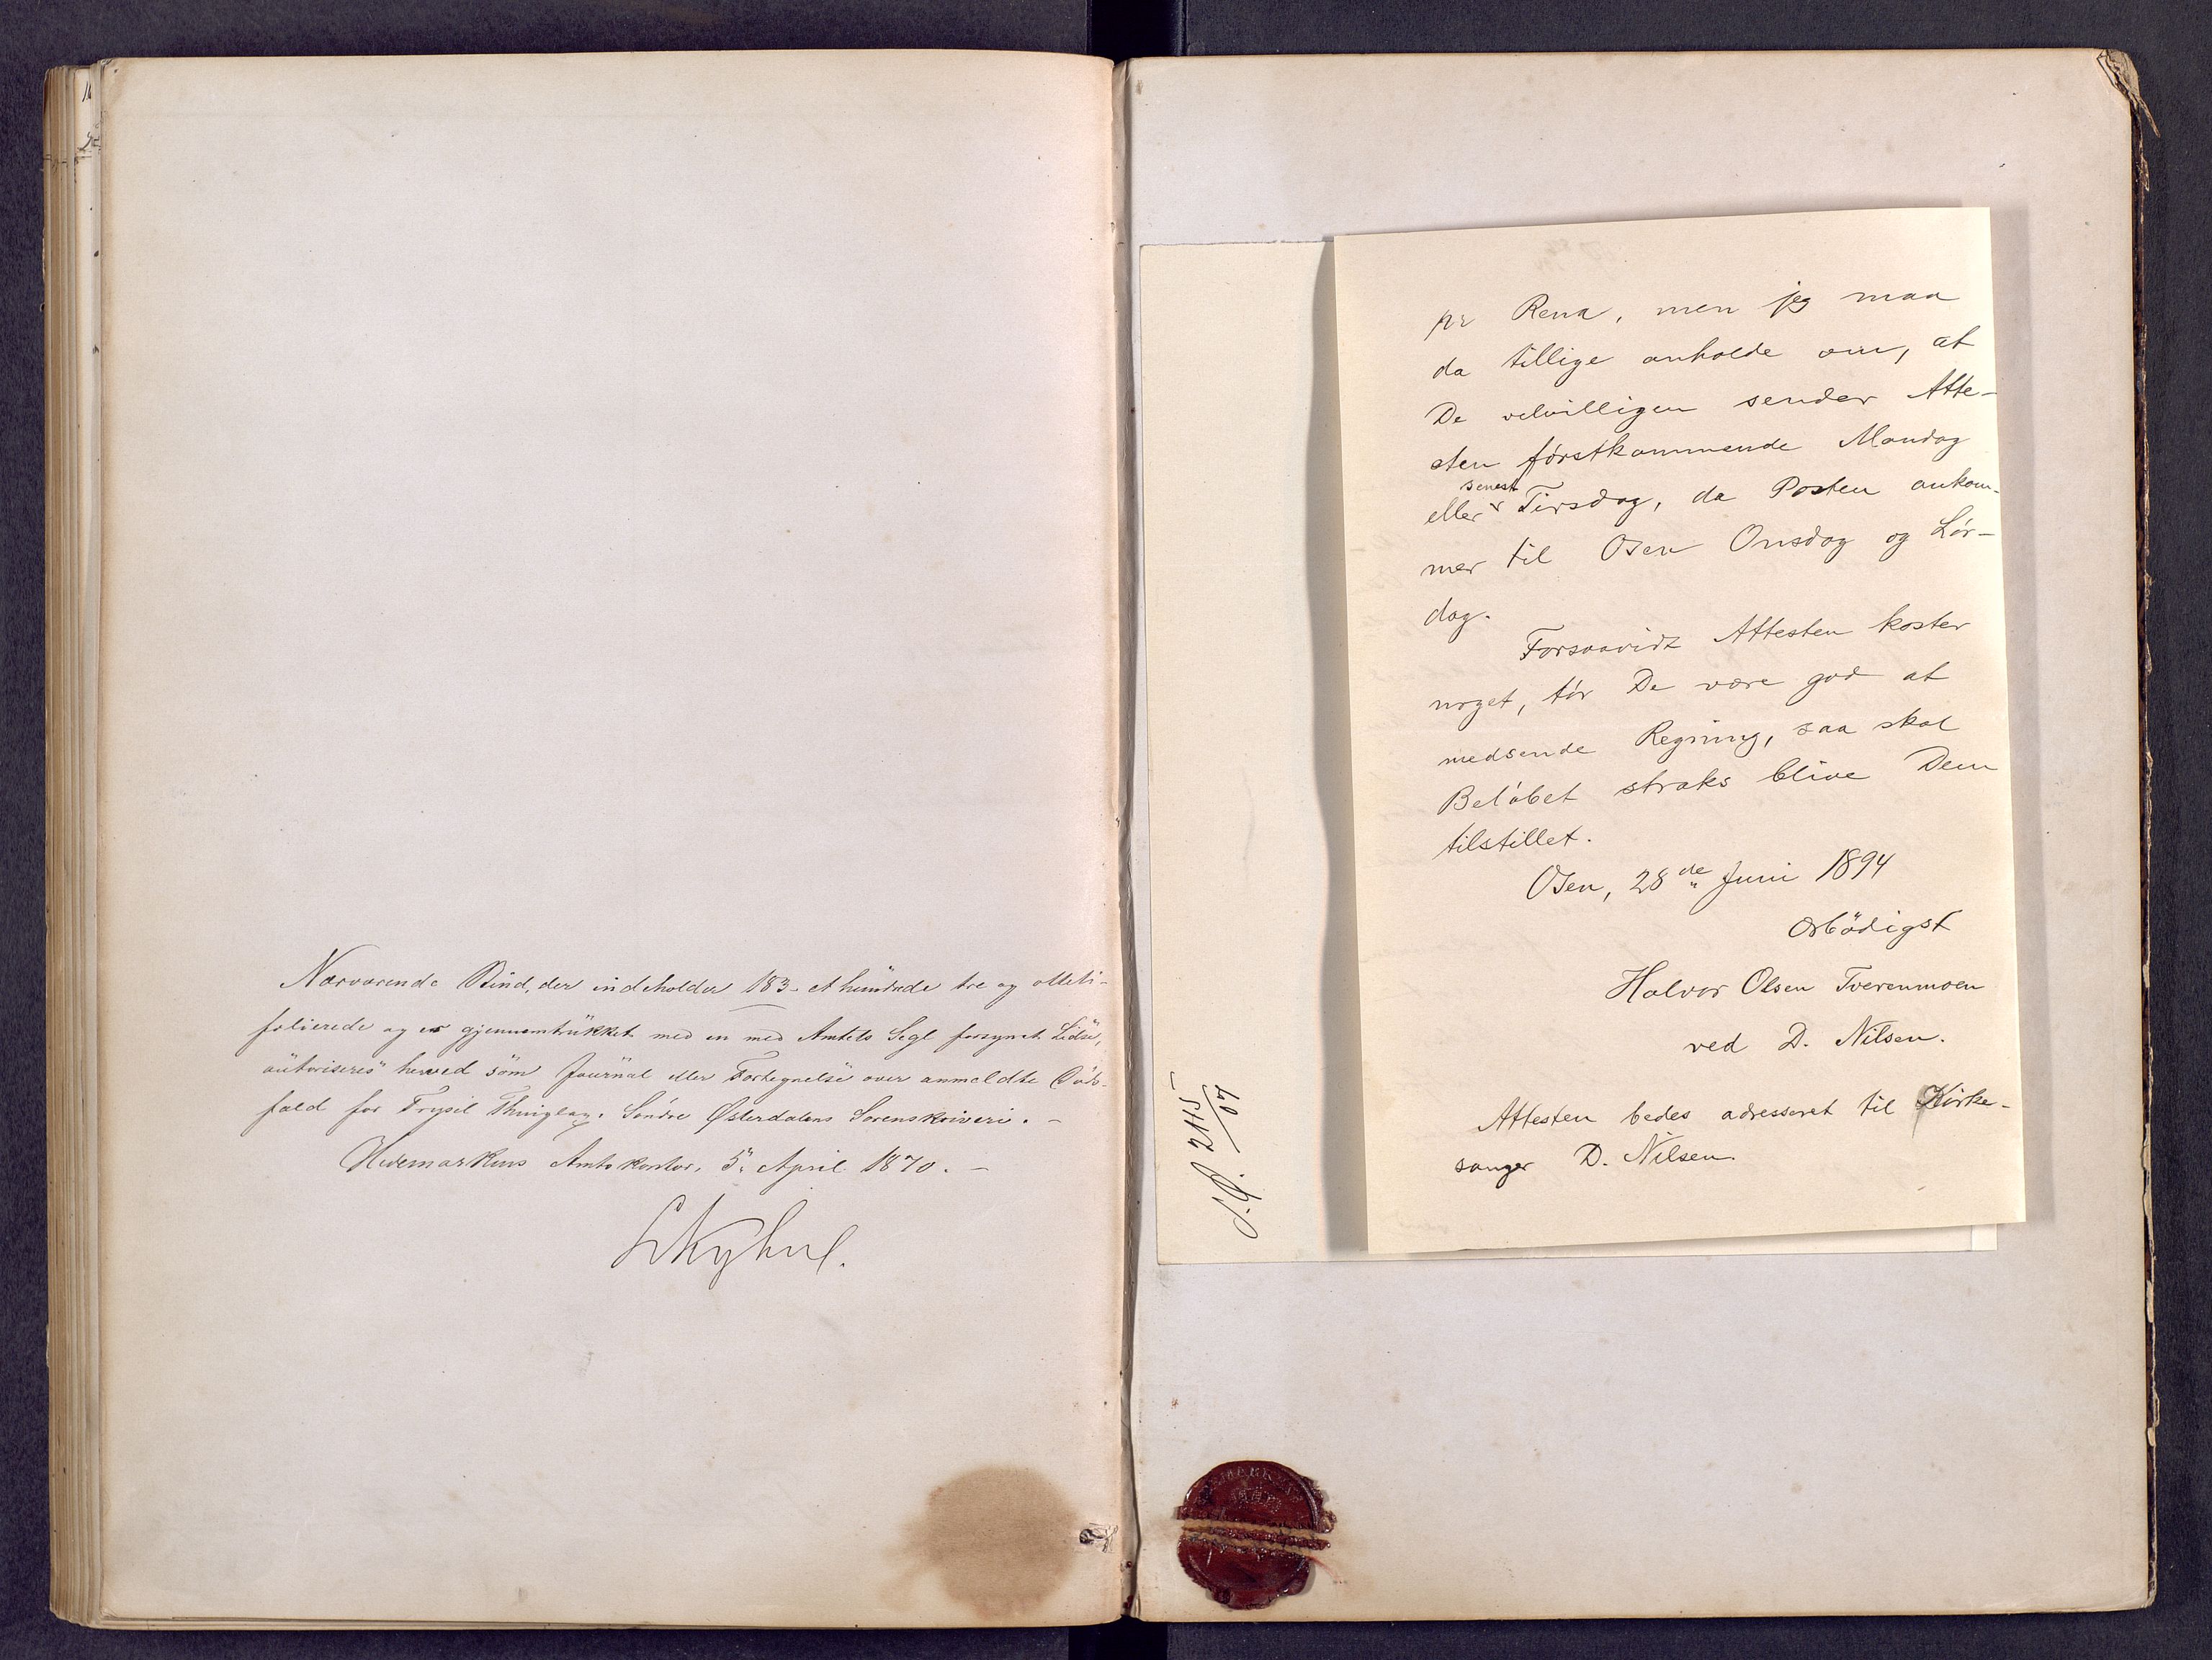 Nærværende Bind, der indeholder 183 - et hundrede tre og otteti -
folierede og er gjennemtrukket med en med Amtets Segl forsynet Lidse,
autoriseres herved som Journal eller Fortegnelse over anmeldte Døds-
fald for Trysil Thinglag, Søndre Østerdalens Sorenskriveri. -
Hedemarkens Amtskontor, 5. April 1870. -
pr Rena, men jeg maa
da tillige anholde om, at
De velvilligen sender Atte-
sten førstkommende Mandag
eller senest Tirsdag, da Posten ankom-
mer til Osen Onsdag og Lør-
dag.
Forsaavidt Attesten koster
noget, tør De være god at
medsende Regning, saa skal
Beløbet straks blive Dem
tilstillet.
Osen, 28de Juni 1894
Ærbödigst
Halvor Olsen Tverenmoen
ved D. Nilsen.
Attesten bedes adresseret til Kirke-
sanger D. Nilsen.
2115/07